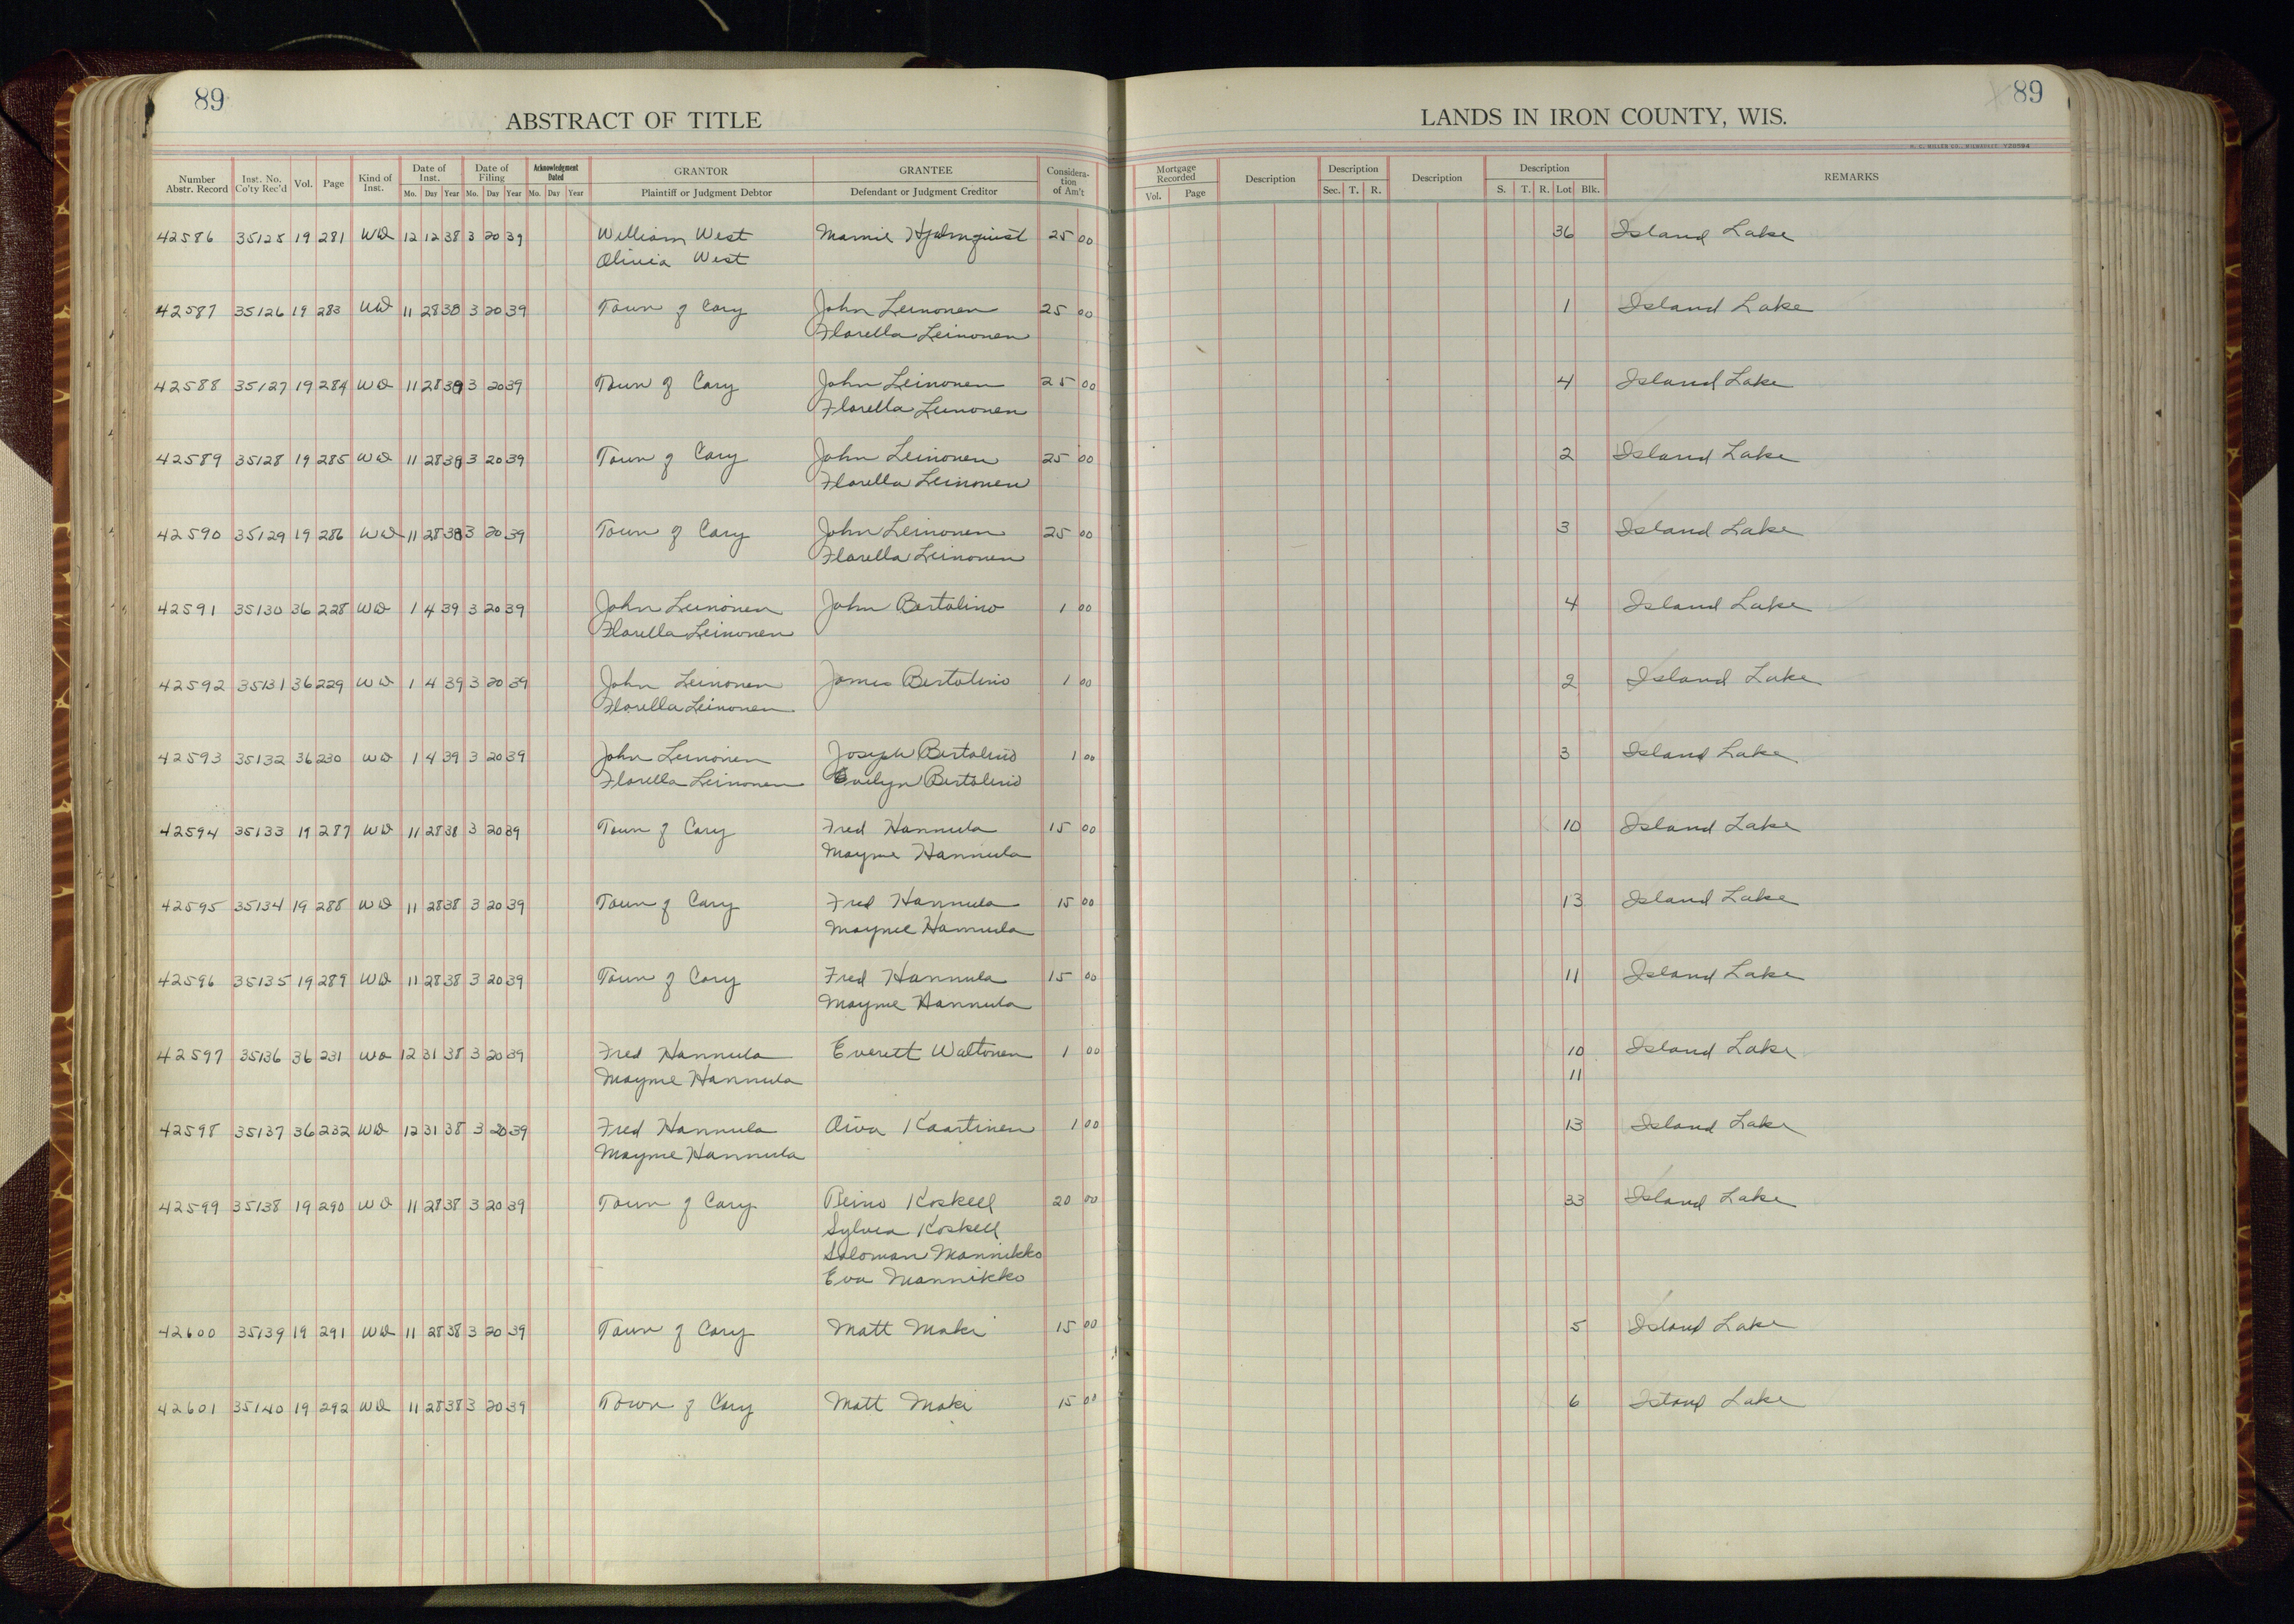 89
ABSTRACT OF TITLE
LANDS IN IRON COUNTY, WIS.
89
Number Abstr. Record Inst. No. Co'ty Rec'd Vol. Page Kind of Inst. Date of Inst. Mo. Day Year Date of Filing Mo. Day Year Acknowledgment Dated Mo. Day Year GRANTOR Plaintiff or Judgment Debtor GRANTEE Defendant or Judgment Creditor Considera-tion of Am't Mortgage Recorded Vol. Page Description Description Sec. T. R. Description Description S. T. R. Lot Blk. REMARKS
42586 35125 19 281 WD 12 12 38 3 20 39 William West Mamie Hjelmquist 25 00 36 Island Lake
Olivia West
42587 35126 19 283 WD 11 28 38 3 20 39 Town of Cary John Leinonen 25 00 1 Island Lake
Florella Leinonen
42588 35127 19 284 WD 11 28 38 3 20 39 Town of Cary John Leinonen 25 00 4 Island Lake
Florella Leinonen
42589 35128 19 285 WD 11 28 38 3 20 39 Town of Cary John Leinonen 25 00 2 Island Lake
Florella Leinonen
42590 35129 19 286 WD 11 28 38 3 20 39 Town of Cary John Leinonen 25 00 3 Island Lake
Florella Leinonen
42591 35130 36 228 WD 1 4 39 3 20 39 John Leinonen John Bertolino 1 00 4 Island Lake
Florella Leinonen
42592 35131 36 229 WD 1 4 39 3 20 39 John Leinonen James Bertolino 1 00 2 Island Lake
Florella Leinonen
42593 35132 36 230 WD 1 4 39 3 20 39 John Leinonen Joseph Bertolino 1 00 3 Island Lake
Florella Leinonen Evelyn Bertolino
42594 35133 19 287 WD 11 28 38 3 20 39 Town of Cary Fred Hannula 15 00 10 Island Lake
Mayme Hannula
42595 35134 19 288 WD 11 28 38 3 20 39 Town of Cary Fred Hannula 15 00 13 Island Lake
Mayme Hannula
42596 35135 19 289 WD 11 28 38 3 20 39 Town of Cary Fred Hannula 15 00 11 Island Lake
Mayme Hannula
42597 35136 36 231 WD 12 31 38 3 20 39 Fred Hannula Everett Waltonen 1 00 10 Island Lake
Mayme Hannula 11
42598 35137 36 232 WD 12 31 38 3 20 39 Fred Hannula Oiva Kaartinen 1 00 13 Island Lake
Mayme Hannula
42599 35138 19 290 WD 11 28 38 3 20 39 Town of Cary Reino Koskell 20 00 33 Island Lake
Sylvia Koskell
Soloman Mannikko
Eva Mannikko
42600 35139 19 291 WD 11 28 38 3 20 39 Town of Cary Matt Maki 15 00 5 Island Lake
42601 35140 19 292 WD 11 28 38 3 20 39 Town of Cary Matt Maki 15 00 6 Island Lake